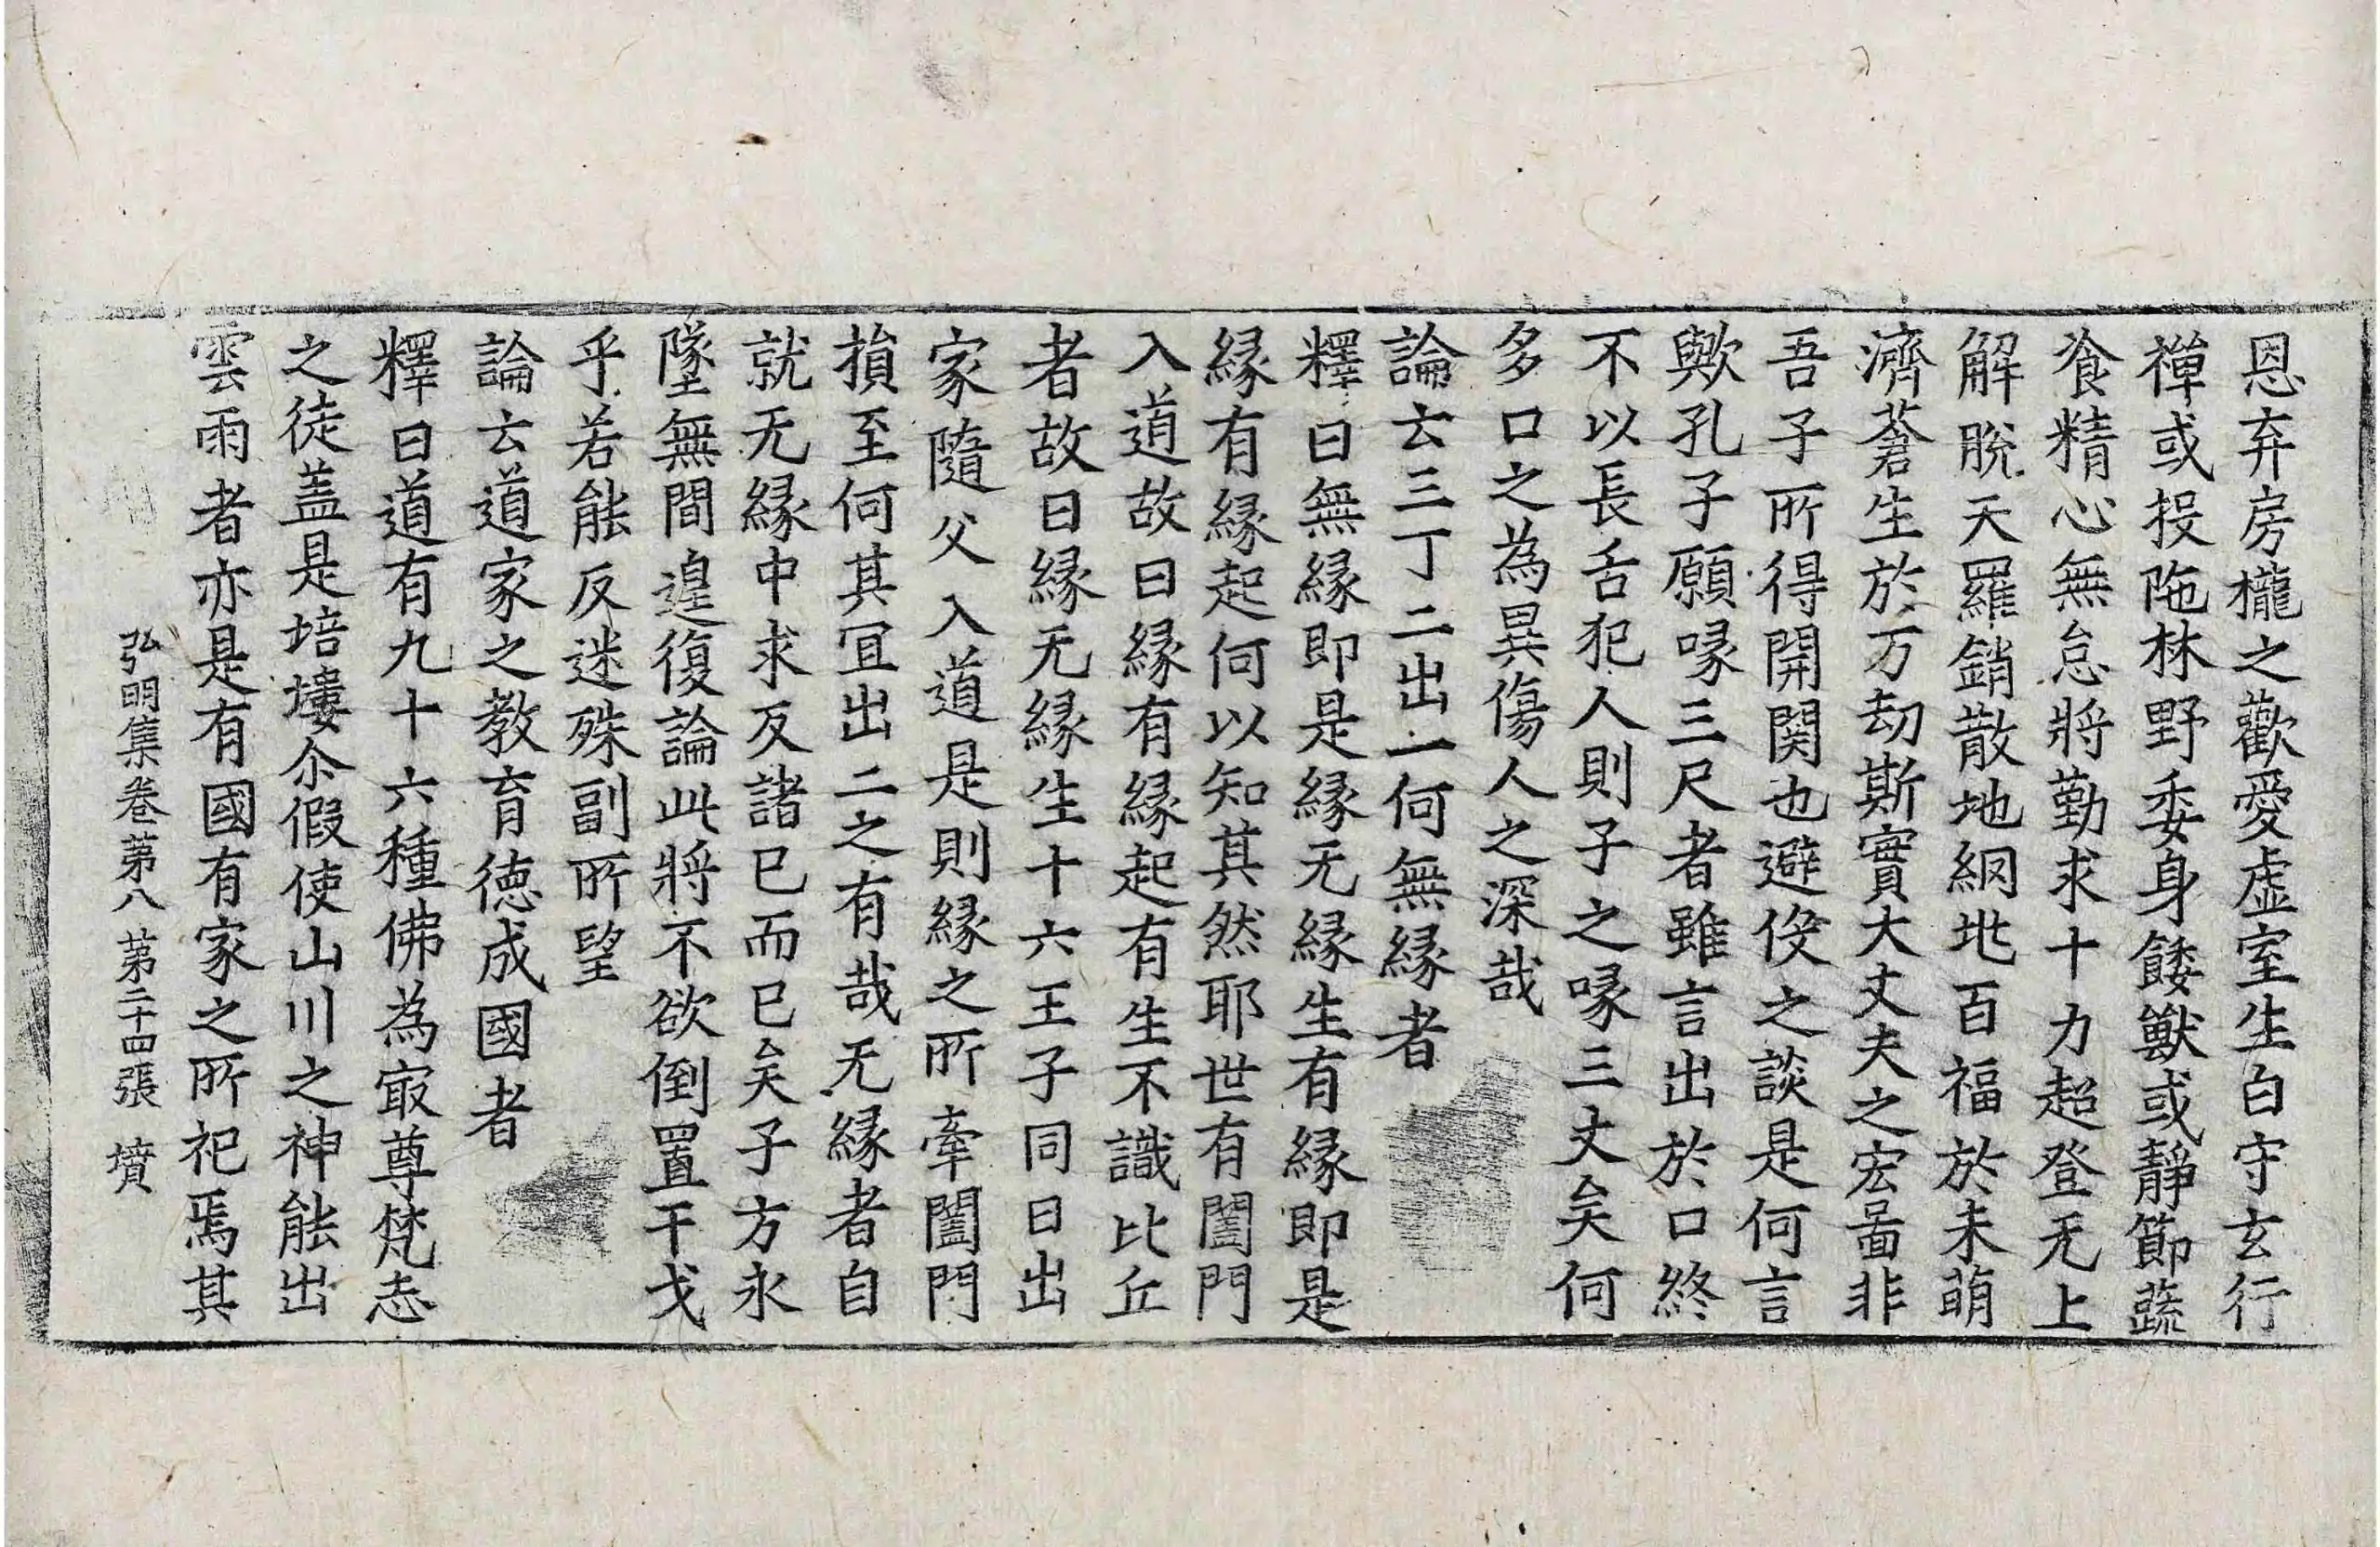 恩弃房櫳之歡愛虛室生白守玄行
禅或投陁林野委身餧獸或靜節蔬
飡精心無怠將勤求十力超登无上
解脫天羅銷散地網兆百福於未萌
濟蒼生於万劫斯實大丈夫之宏啚非
吾子所得開関也避役之談是何言
歟孔子願喙三尺者雖言出於口終
不以長舌犯人則子之喙三丈矣何
多口之為異傷人之深哉
論云三丁二出一何無縁者
釋曰無縁即是縁无縁生有縁即是
縁有縁起何以知其然耶世有闔門
入道故曰縁有縁起有生不識比丘
者故曰縁无縁生十六王子同日出
家隨父入道是則縁之所牽闔門
損至何其冝出二之有哉无縁者自
就无縁中求反諸已而已矣子方永
墜無間遑復論此將不欲倒置干戈
乎若能反迷殊副所望
論云道家之教育德成國者
釋曰道有九十六種佛為㝡尊梵志
之徒盖是培塿尒假使山川之神能出
雲雨者亦是有國有家之所祀焉其
弘明集卷第八 第二十四張 墳